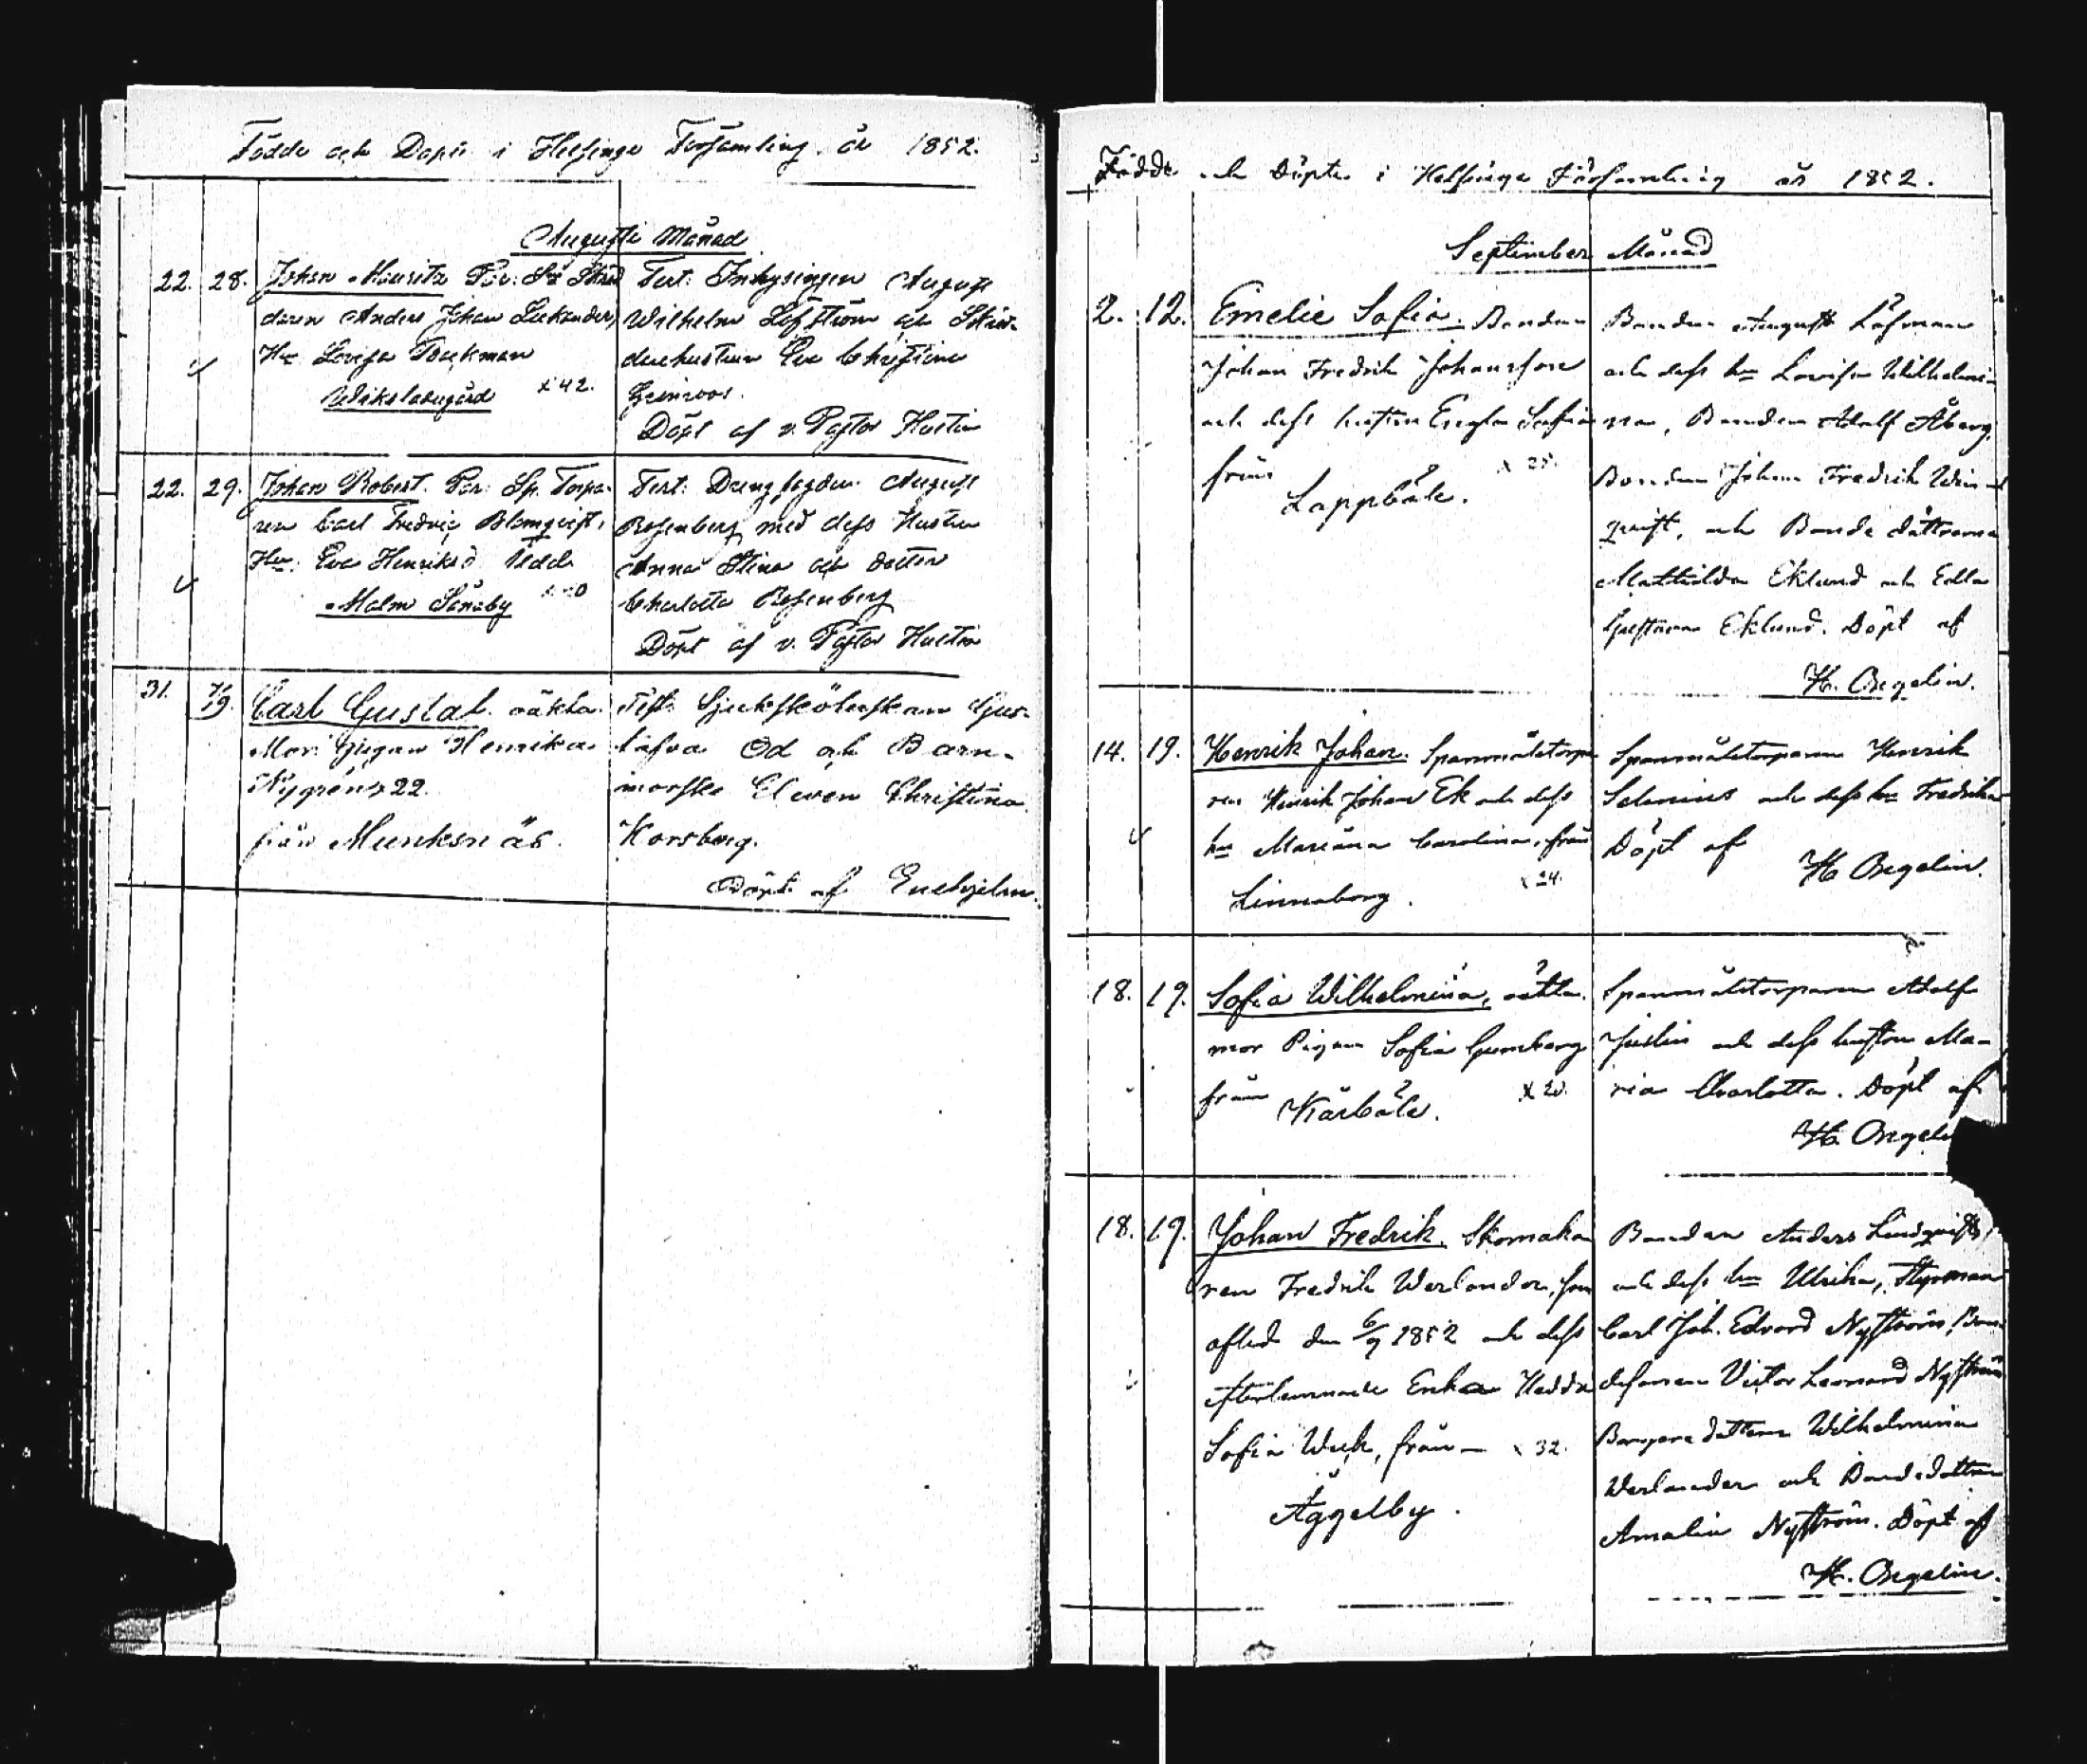 Födde och Döpte i Helsinge Församling år 1852.
Augusti Månad
22. 28. Johan Mauritz För: Skräd
daren Anders Johan Lukander,
Hu Lovisa Backman
Wiksladugård x 42.
Test: Inhysingen August
Wilhelm Löfström och Skräd-
darehustrun Eva Christina
Grönroos.
Döpt af v. Pastor Hustin
22. 29. Johan Robert. För: Sp. Torpa-
ren Carl Fredric Blomqvist,
Hu: Eva Henriksd
Malm Sånäby
Test: August
Rosenberg med dess Hustru
Anna Stina och dotter
Charlotta Rosenberg
Döpt af v. Pastor Hustin
31. /9. Carl Gustaf. oäkta.
Mor: Pigan Henrika
Nygrén x 22.
från Munksnäs.
Test: Sjuksköterskan Gus-
tafva Od och Barn-
morske Eleven Christina
Korsberg.
Döpt af Enehjelm.
Födde och Döpte i Helsinge Församling år 1852.
September Månad
2. 12. Emelie Sofia. Bonden
Johan Fredrik Johansson
och dess hustru Sofia
från
Lappböle. x 25.
Bonden August Löfman
och dess hu Lovisa Wilhelmi-
na, Bonden Adolf Åberg,
Bonden Johan Fredrik Win
qvist, och Bonde döttrarna
Mathilda Eklund och Edla
Gustava Eklund. Döpt af
H. Begelin.
14. 19. Henrik Johan. Spannmålstorpa
ren Henrik Johan Ek och dess
hu Mariana Carolina, från
Linnaborg. x 24.
Spannmålstorparen Henrik
Selenius och dess hu Fredrika
Döpt af H. Begelin.
18. 19. Sofia Wilhelmina, oäkta.
mor Pigan Sofia Gumberg
från Kårböle. x 20.
Spannmålstorparen Adolf
Julin och dess hustru Ma-
ria Charlotta. Döpt af
H. Begeli
18. 19. Johan Fredrik. Skomaka
ren Fredrik Werlander, som
afled den 6/9 1852 och dess
efterlemnade Enka Hedda
Sofia Wik, från x 32.
Åggelby.
Bonden Anders Lindqvist,
och dess hu Ulrika, Styrman
Carl Joh. Edvard Nyström, Bon-
desonen Victor Leonard Nyström
dottern Wilhelmina
Werlander och Bondedottern
Amalia Nyström. Döpt af
H. Begelin.